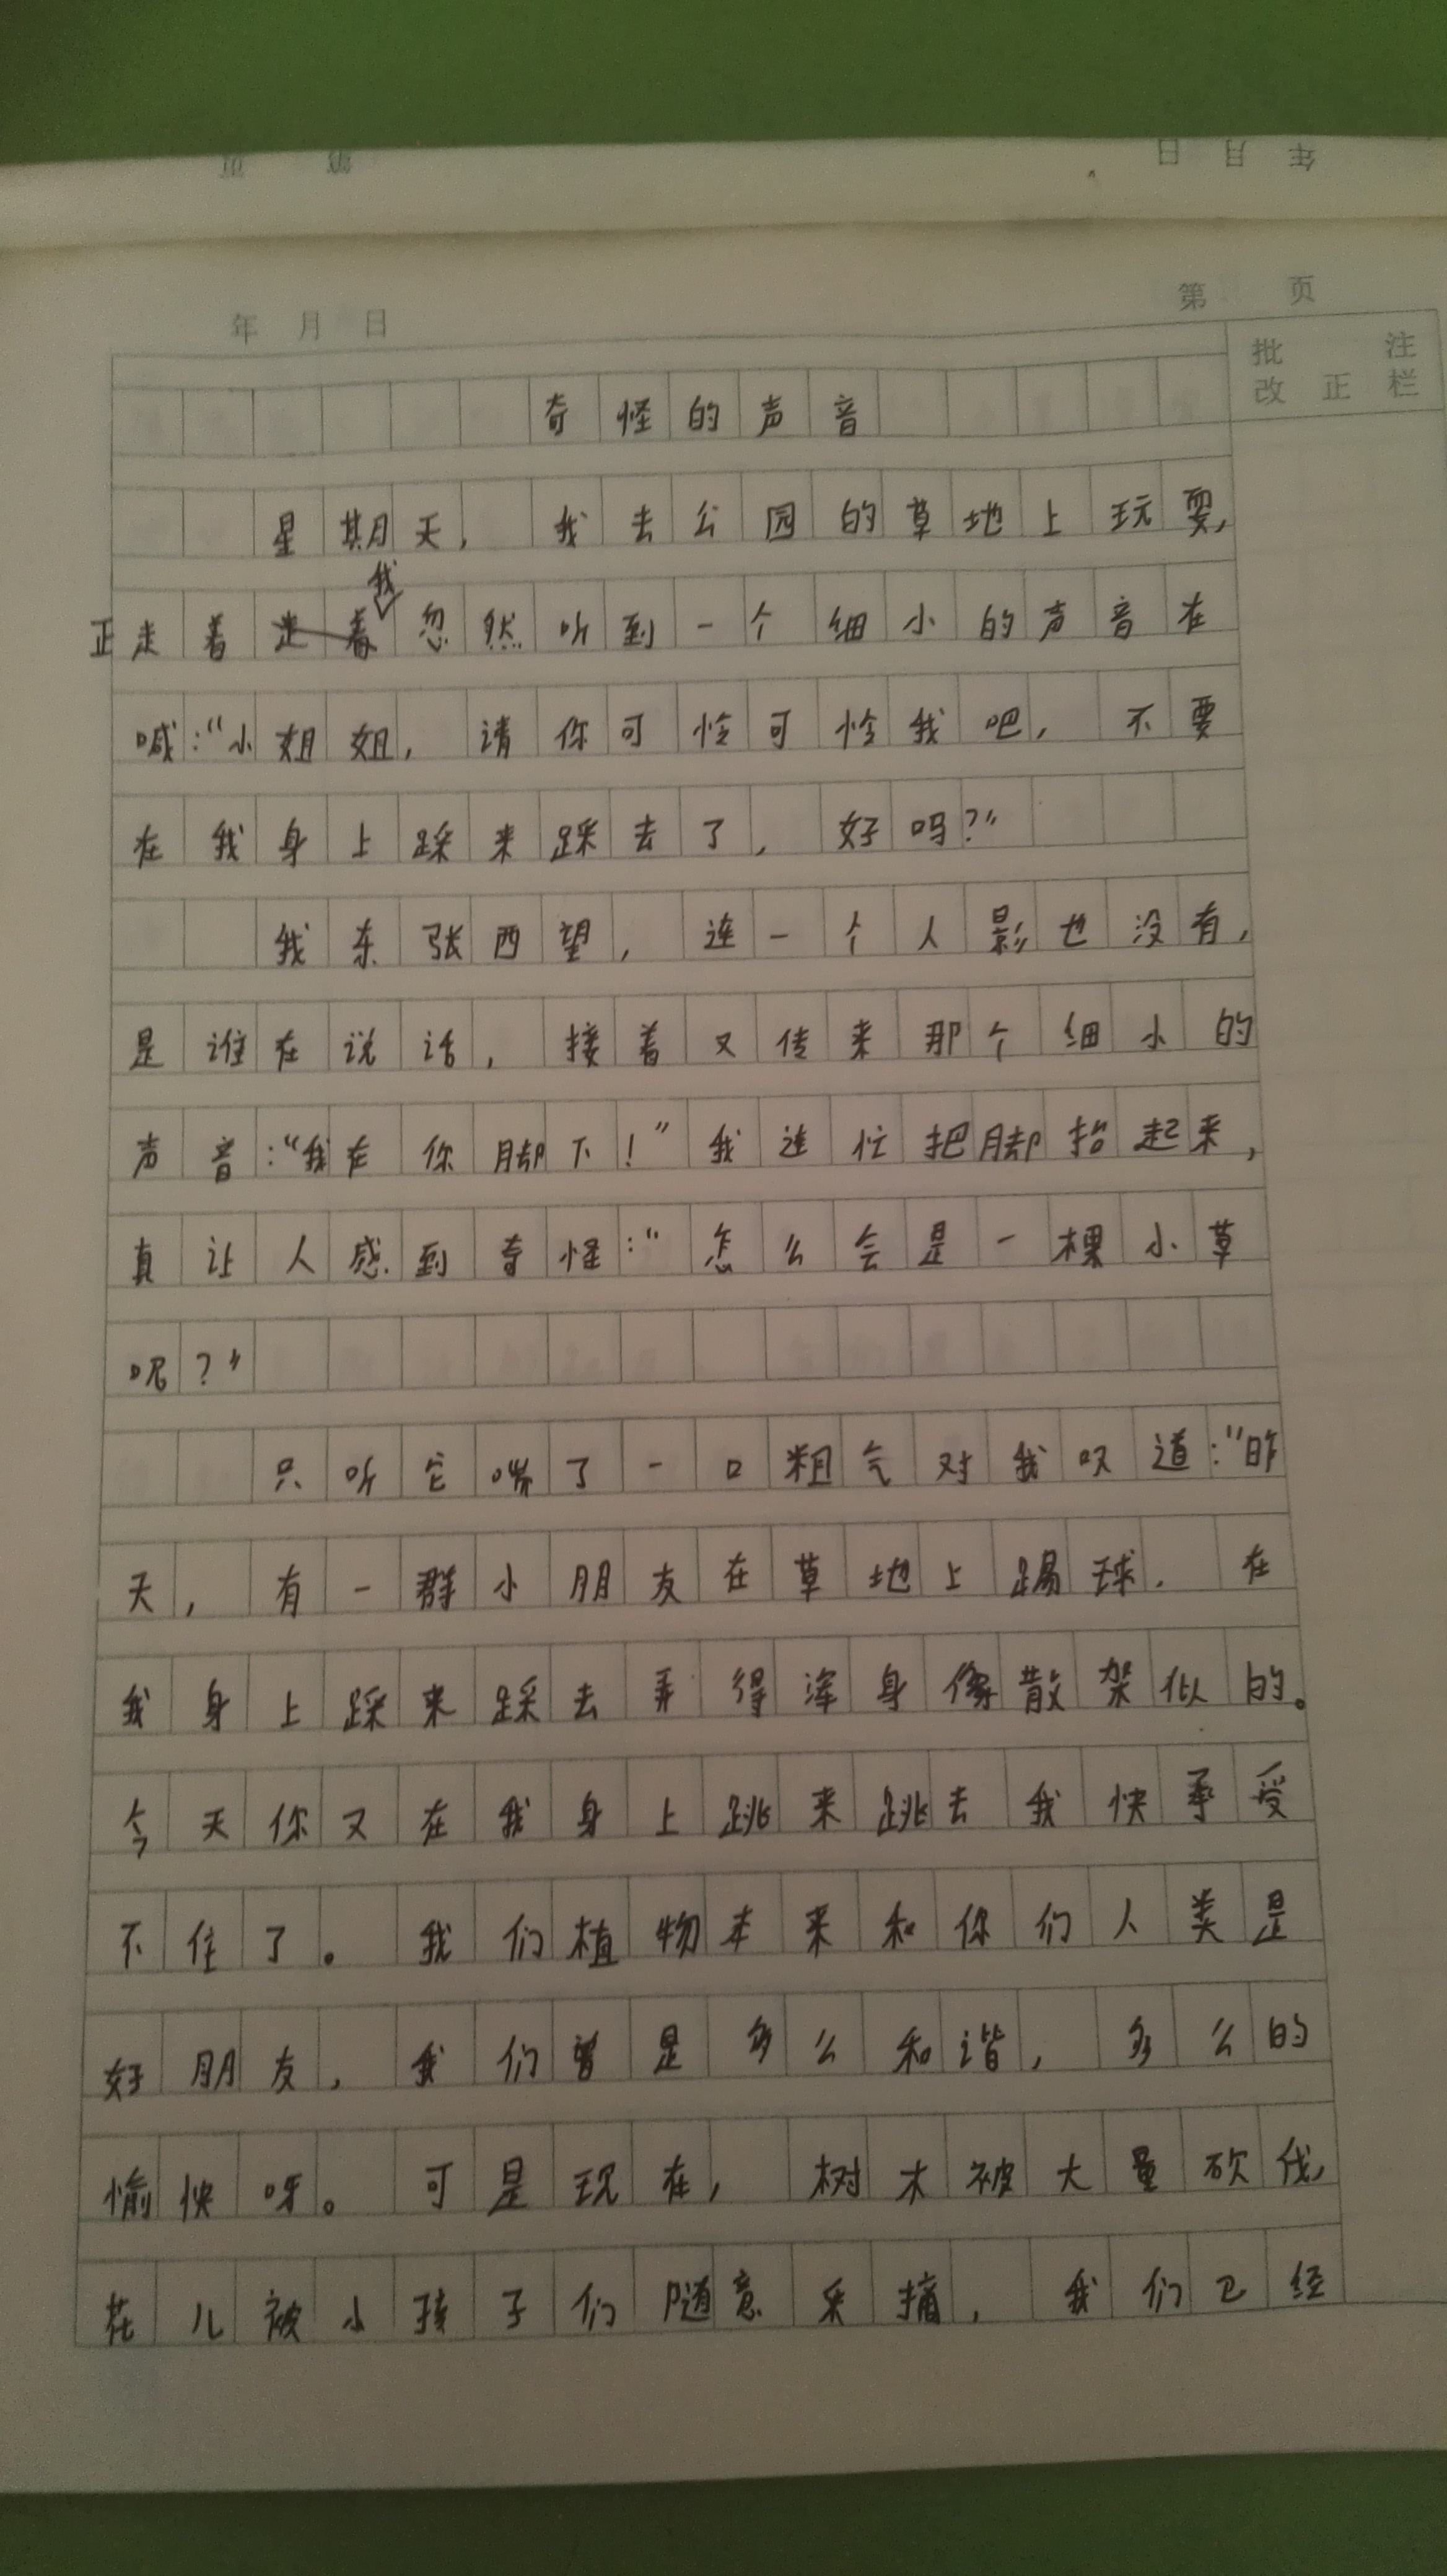 年 月 日
第 页
批 注
改 正 栏
奇怪的声音
星期天,我去公园的草地上玩耍,
我
正走着走着忽然听到一个细小的声音在
喊:“小姐姐,请你可怜可怜我吧,不要
在我身上踩来踩去了,好吗?”
我东张西望,连一个人影也没有,
是谁在说话,接着又传来那个细小的
声音:“我在你脚下!”我连忙把脚抬起来,
真让人感到奇怪:“怎么会是一棵小草
呢?”
只听它喘了一口粗气对我叹道:“昨
天,有一群小朋友在草地上踢球.在
我身上踩来踩去弄得浑身像散架似的。
今天你又在我身上跳来跳去我快承受
不住了。我们植物本来和你们人类是
好朋友,我们曾是多么和谐,多么的
愉快呀。可是现在,树木被大量砍伐,
花儿被小孩子们随意采摘,我们已经